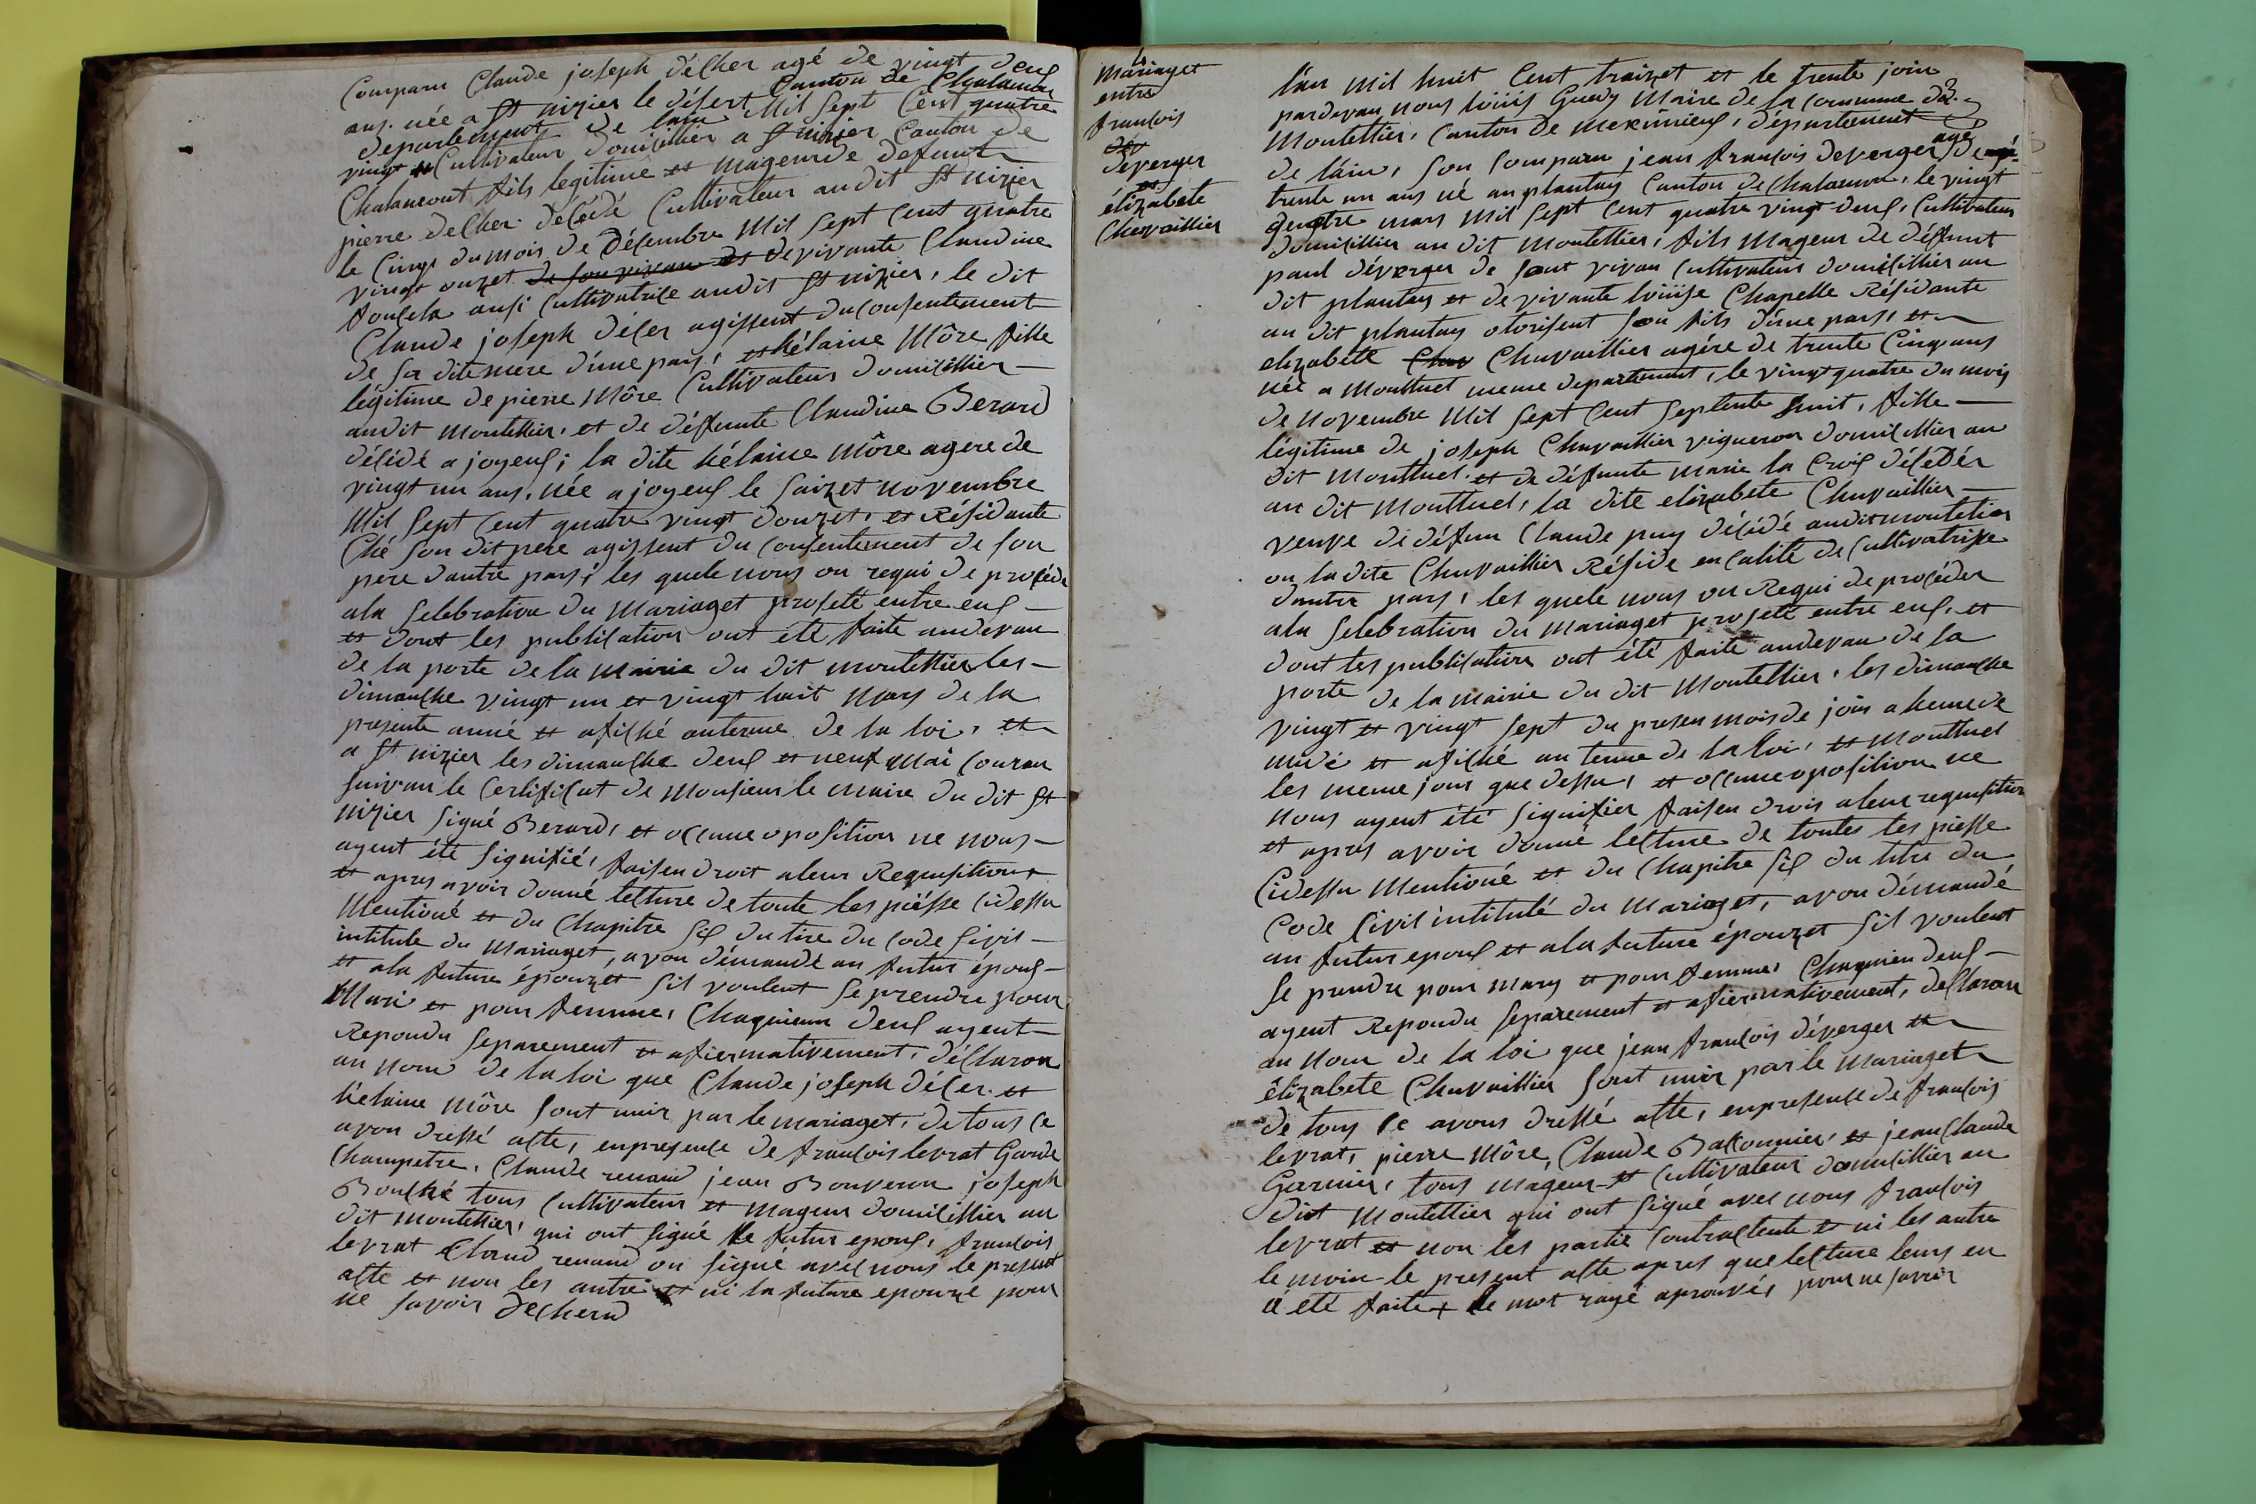 Comparu Claude joseph déCher agé de vingt deux
ans. née a St nizier le désert Canton de Chalamon
departement de lain Mil sept Cent quatre
vingt Cultivateur domicillier a St nizier Canton de
Chalamont fils legitime et mageur de defunt
pierre deCher. décédé Cultivateur audit St nizier
le Cinq du mois de Décembre Mil sept Cent quatre
vingt onzet de son vivan et de vivante Claudine
ausi Cultivatrice audit St nizier, le dit
Claude joseph déCer agissent du consentement
de sa dite mere d'une pars, et hélaine Môre fille
légitime de pierre Môre Cultivateur domicillier
audit montellier, et de défunte Claudine Berard
décédé a joyeux; la dite hélaine Môre agere de
vingt un ans, née a joyeux le saizet novembre
Mil sept Cent quatre vingt douzet, et Résidante
Ché son dit pere agissent du consentement de son
pere d'autre pars; les quele nous on requi de proséde
ala selebration du Mariaget projeté entre eux
et dont les publication ont été faite audevan
de la porte de la Mairie du dit montellier les
dimanche vingt un et vingt huit Mars de la
presente année et afiché auterme de la loi, et
a St nizier les dimanche deux et neuf Mai Couran
suivan le Certificat de Monsieur le maire du dit St
nizier signé Berard, et occune oposition ne nous
ayent été signifié, faisen droit aleur Requisition
et apres avoir donné lecture de toute les piésse Cidessu
Mentioné et du Chapitre six du tire du Code Civil
intitule du Mariaget, avon démandé au futur époux
et ala future épouzet sil voulent se prendre pour
Mari et pour femme, Chaquieun deux ayent
Repondu separement et afiermativement, déClaron
au nom de la loi que Claude joseph déCer. et
hélaine Môre sont unir par le mariaget, de tous ce
avon dressé acte, enpresence de françois levrat Garde
Champetre, Claude renaud jean Bouveron joseph
Bouché tous Cultivateur et mageur domicillier au
dit montellier, qui ont signé le futur epoux, françois
levrat Claud renaud on signé avec nous le present
acte et non les autre et ni la future epouze pour
ne savoir deCherd
le
Mariaget
entre
françois
dev
déverger
et
élizabete
Chevaillier
l'an Mil huit Cent traizet et le trente join
pardevan nous loüis Guedy Maire de la Commune du
Montellier, Canton de meximieux, département
de l'ain, son Comparu jean françois deverger agé de
trente un ans né au plantay Canton de Chalamon, le vingt
quatre mars Mil sept Cent quatre vingt deux, Cultivateur
domicillier au dit montellier, fils Mageur de défunt
paul déverger de sont vivan Cultivateur domicillier au
dit plantay et de vivante loüise Chapelle Résidante
au dit plantay otorisent son fils d'une pars, et
elizabete Chav Chavaillier agére de trente Cinq ans
née a Montluel meme departement, le vingt quatre du mois
de Novembre Mil sept Cent septente huit, fille
légitime de joseph Chavaillier vigneron domicillier au
dit Montluel. et de défunte marie la Croix décéder
au dit Montluel, la dite elizabete Chavaillier
veuve de défun Claude puy décédé audit montelier
ou la dite Chavaillier Réside en Calité de Cultivatrise
dautre pars, les quele nous on Requi de procéder
ala selebration du Mariaget projeté entre eux, et
dont les publication ont été faite audevan de la
porte de la Mairie du dit Montellier, les dimanche
vingt et vingt sept du presen mois de join a heure de
midi et afiché au terme de la loi, et Montluel
les meme jour que dessu, et occune oposition ne
nous ayent été signifier faisen drois aleur requisition
et apres avoir donné lecture de toutes les piesse
Cidessu Mentioné et du Chapitre six du titre du
Code Civil intitulé du Mariaget, avon démandé
au futur epoux et ala future épouzet sil voulent
se prendre pour mary et pour femme, Chaquieu deux
ayent Repondu separement et afiermativement, deClaron
au Nom de la loi que jean françois déverger et
élizabete Chavaillier sont unir par le Mariaget
de tous ce avons dressé acte, enpresence de françois
levrat, pierre Môre, Claude Batonnier, et jean Claude
Garnier, tous mageur et Cultivateur domicillier au
dit Montellier qui ont signé avec nous françois
levrat et non les partie Contractente et ni les autre
le moin le present acte apres que lecture leurs en
a été faite + le mot rayé aprouvé, pour ne savoir